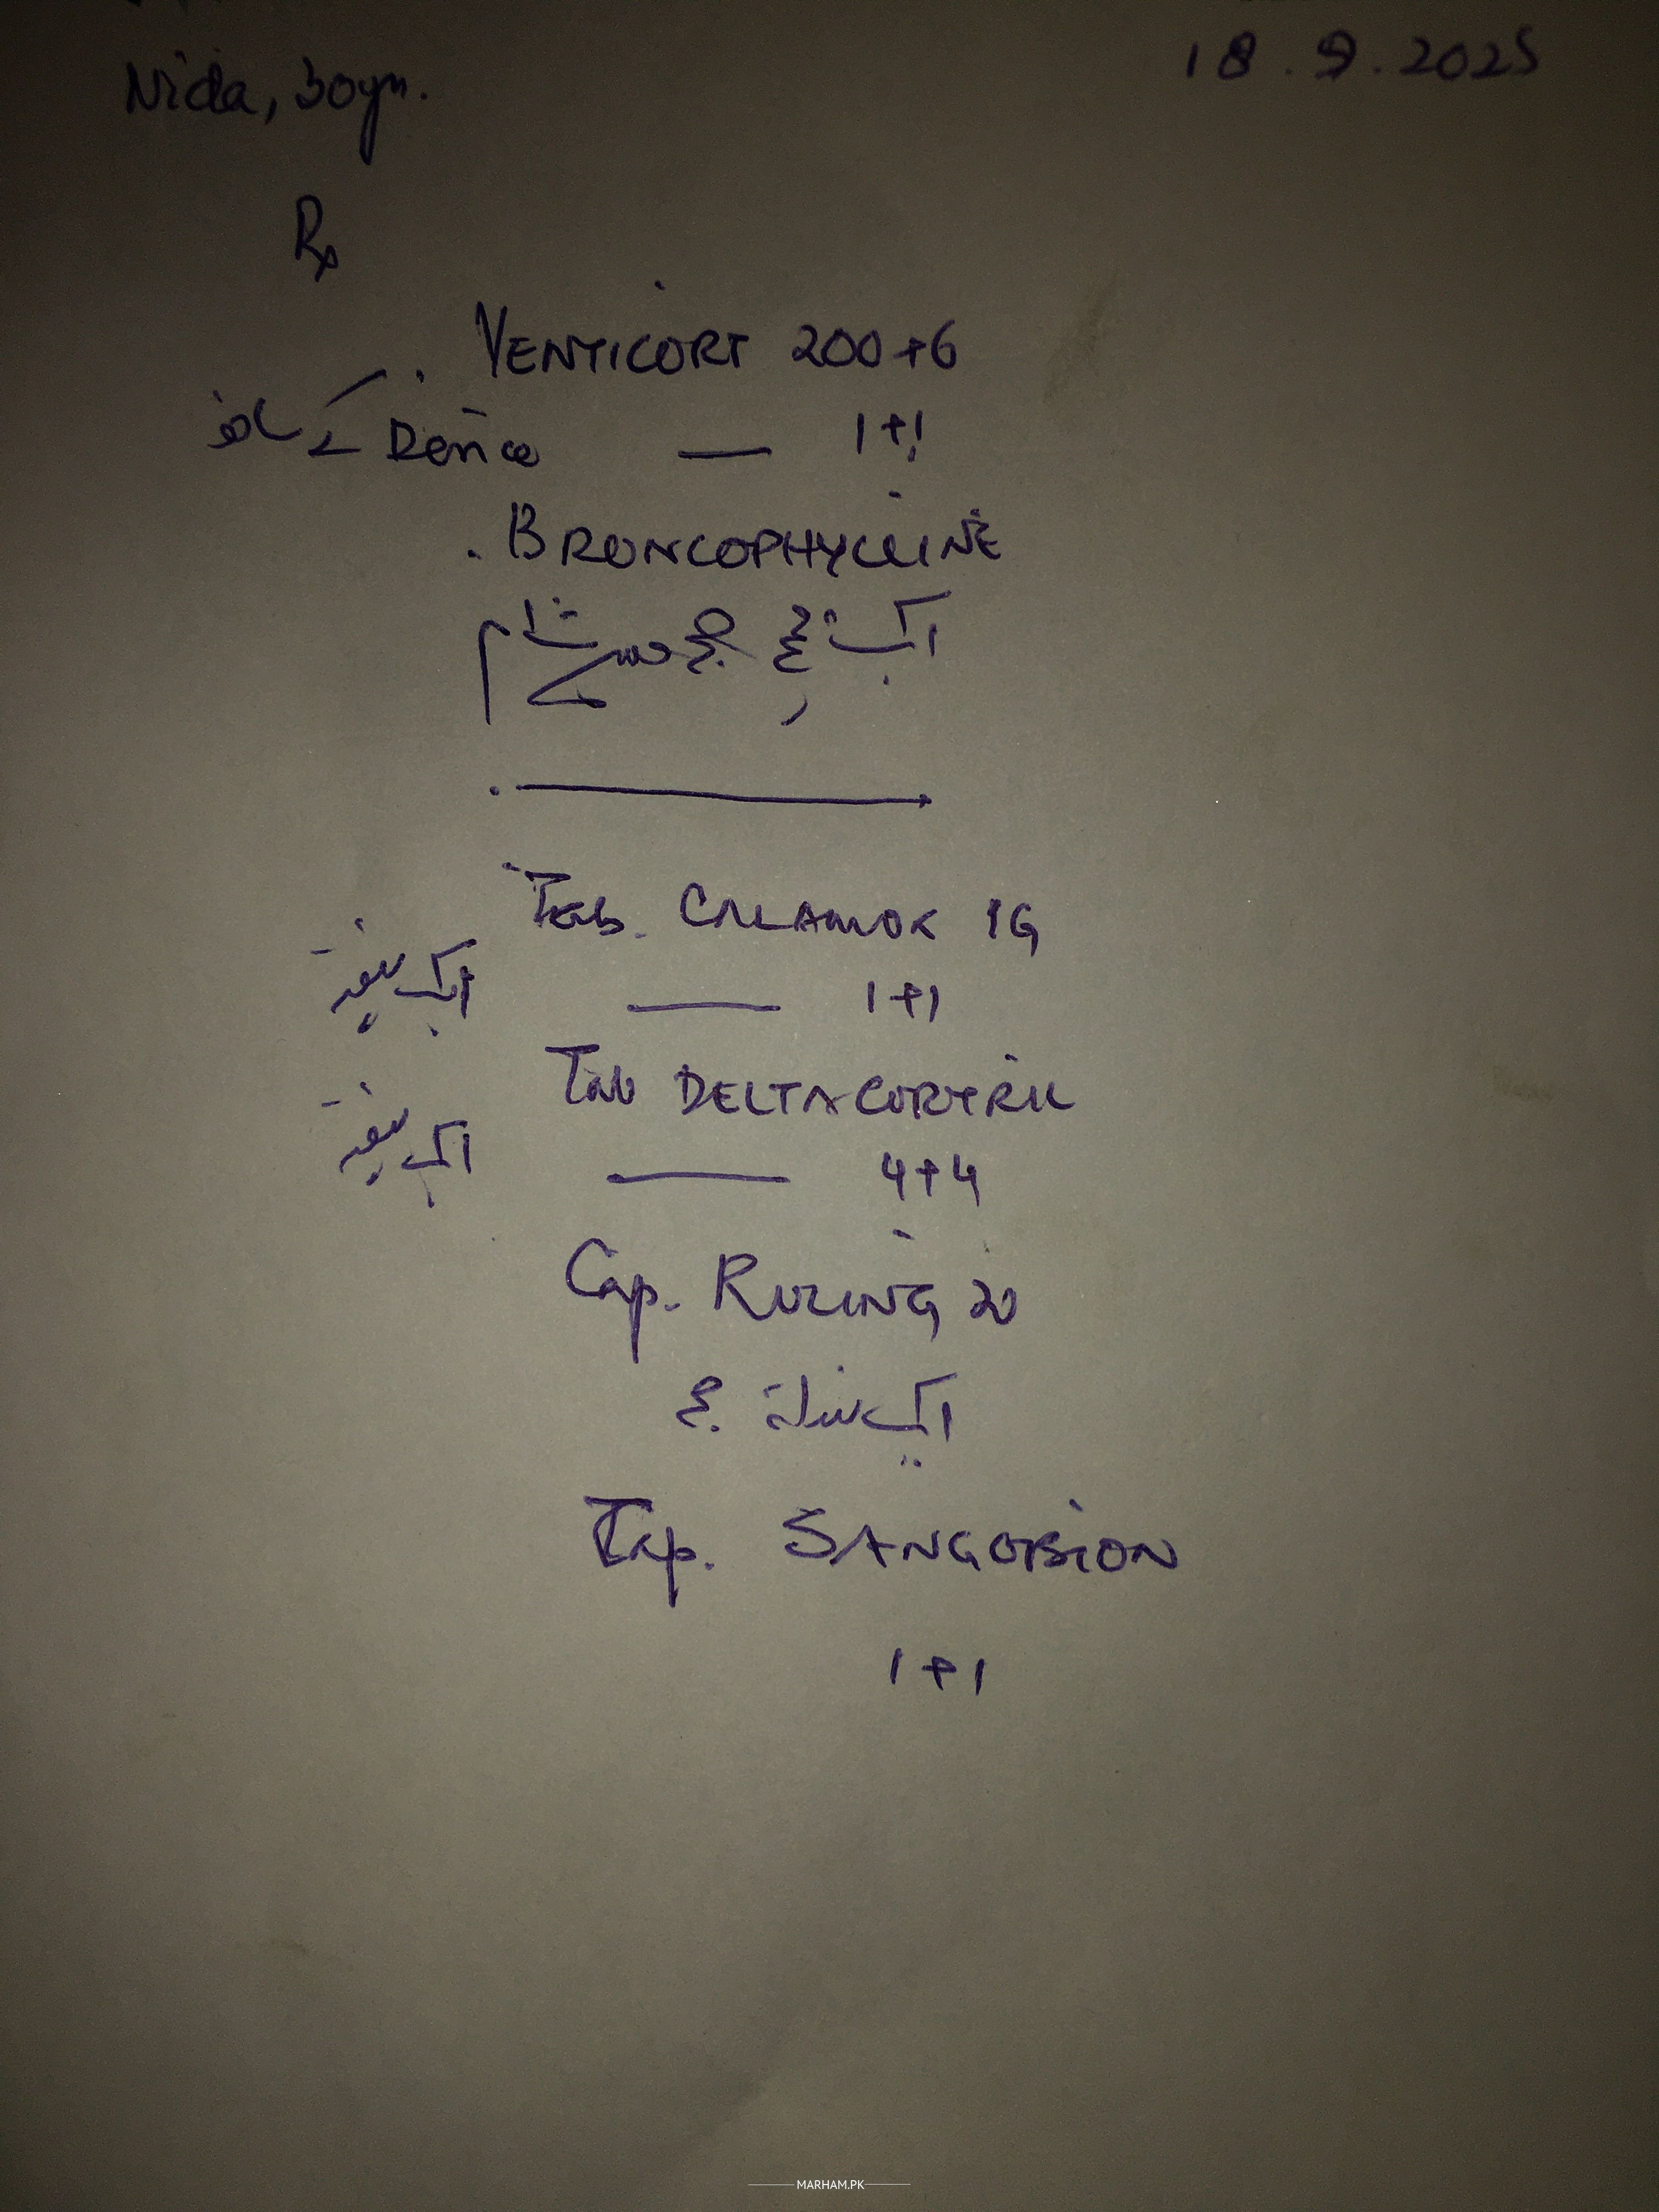 Nida, 30yr.
18.9.2025
Rx
. VENTICORT 200+6
Device کے ساتھ — 1+1
. BRONCOPHYLLINE
ایک چمچ صبح شام
Tab. CALAMOX 1G
ایک ہفتہ — 1+1
Tab DELTACORTRIL
ایک ہفتہ — 4+4
Cap. RULING 20
ایک صبح
Cap. SANGOBION
1+1
MARHAM.PK